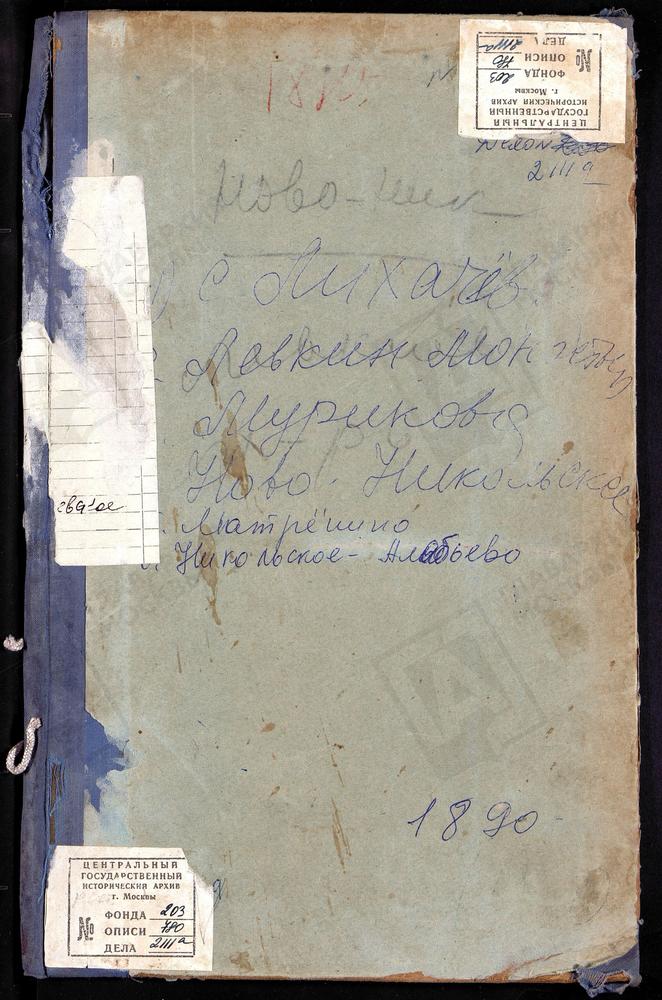 ЦЕНТРАЛЬНЫЙ
ГОСУДАРСТВЕННЫЙ
ИСТОРИЧЕСКИЙ АРХИВ
г. Москвы
№
ФОНДА 203
ОПИСИ 780
ДЕЛА 2111а
2111а
Ново-Ник
с Лихачёв.
Левкин Мон
Мурикова
Ново-Никольское
Матрёнино
Никольское-Алабьево
1890
ЦЕНТРАЛЬНЫЙ
ГОСУДАРСТВЕННЫЙ
ИСТОРИЧЕСКИЙ АРХИВ
г. Москвы
№
ФОНДА 203
ОПИСИ 780
ДЕЛА 2111а